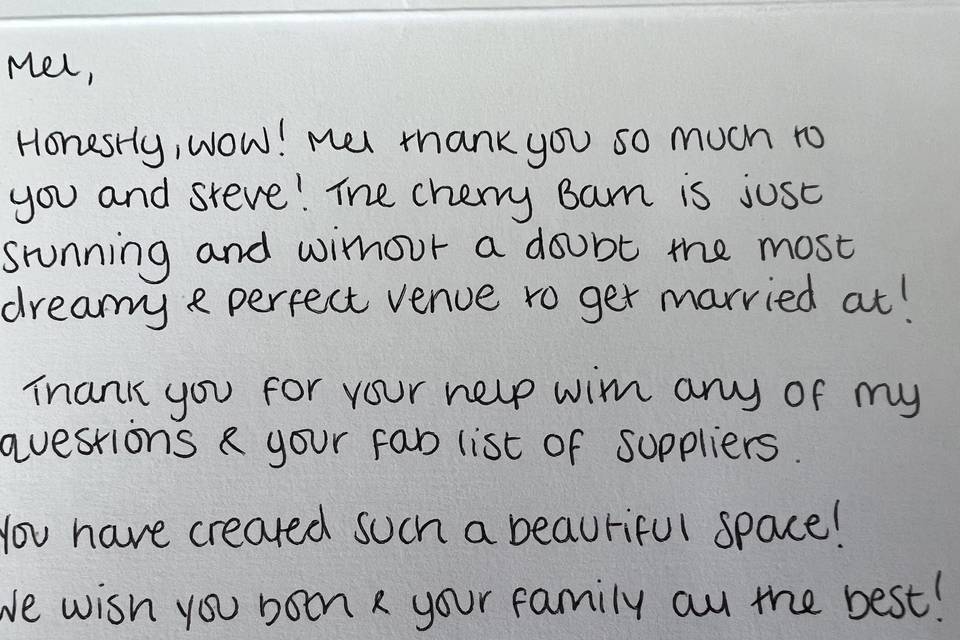 Mel,
Honestly, wow! Mel thank you so much to
you and Steve! The Cherry Barn is just
stunning and without a doubt the most
dreamy & perfect venue to get married at!
Thank you for your help with any of my
questions & your fab list of suppliers.
You have created such a beautiful space!
We wish you both & your family all the best!